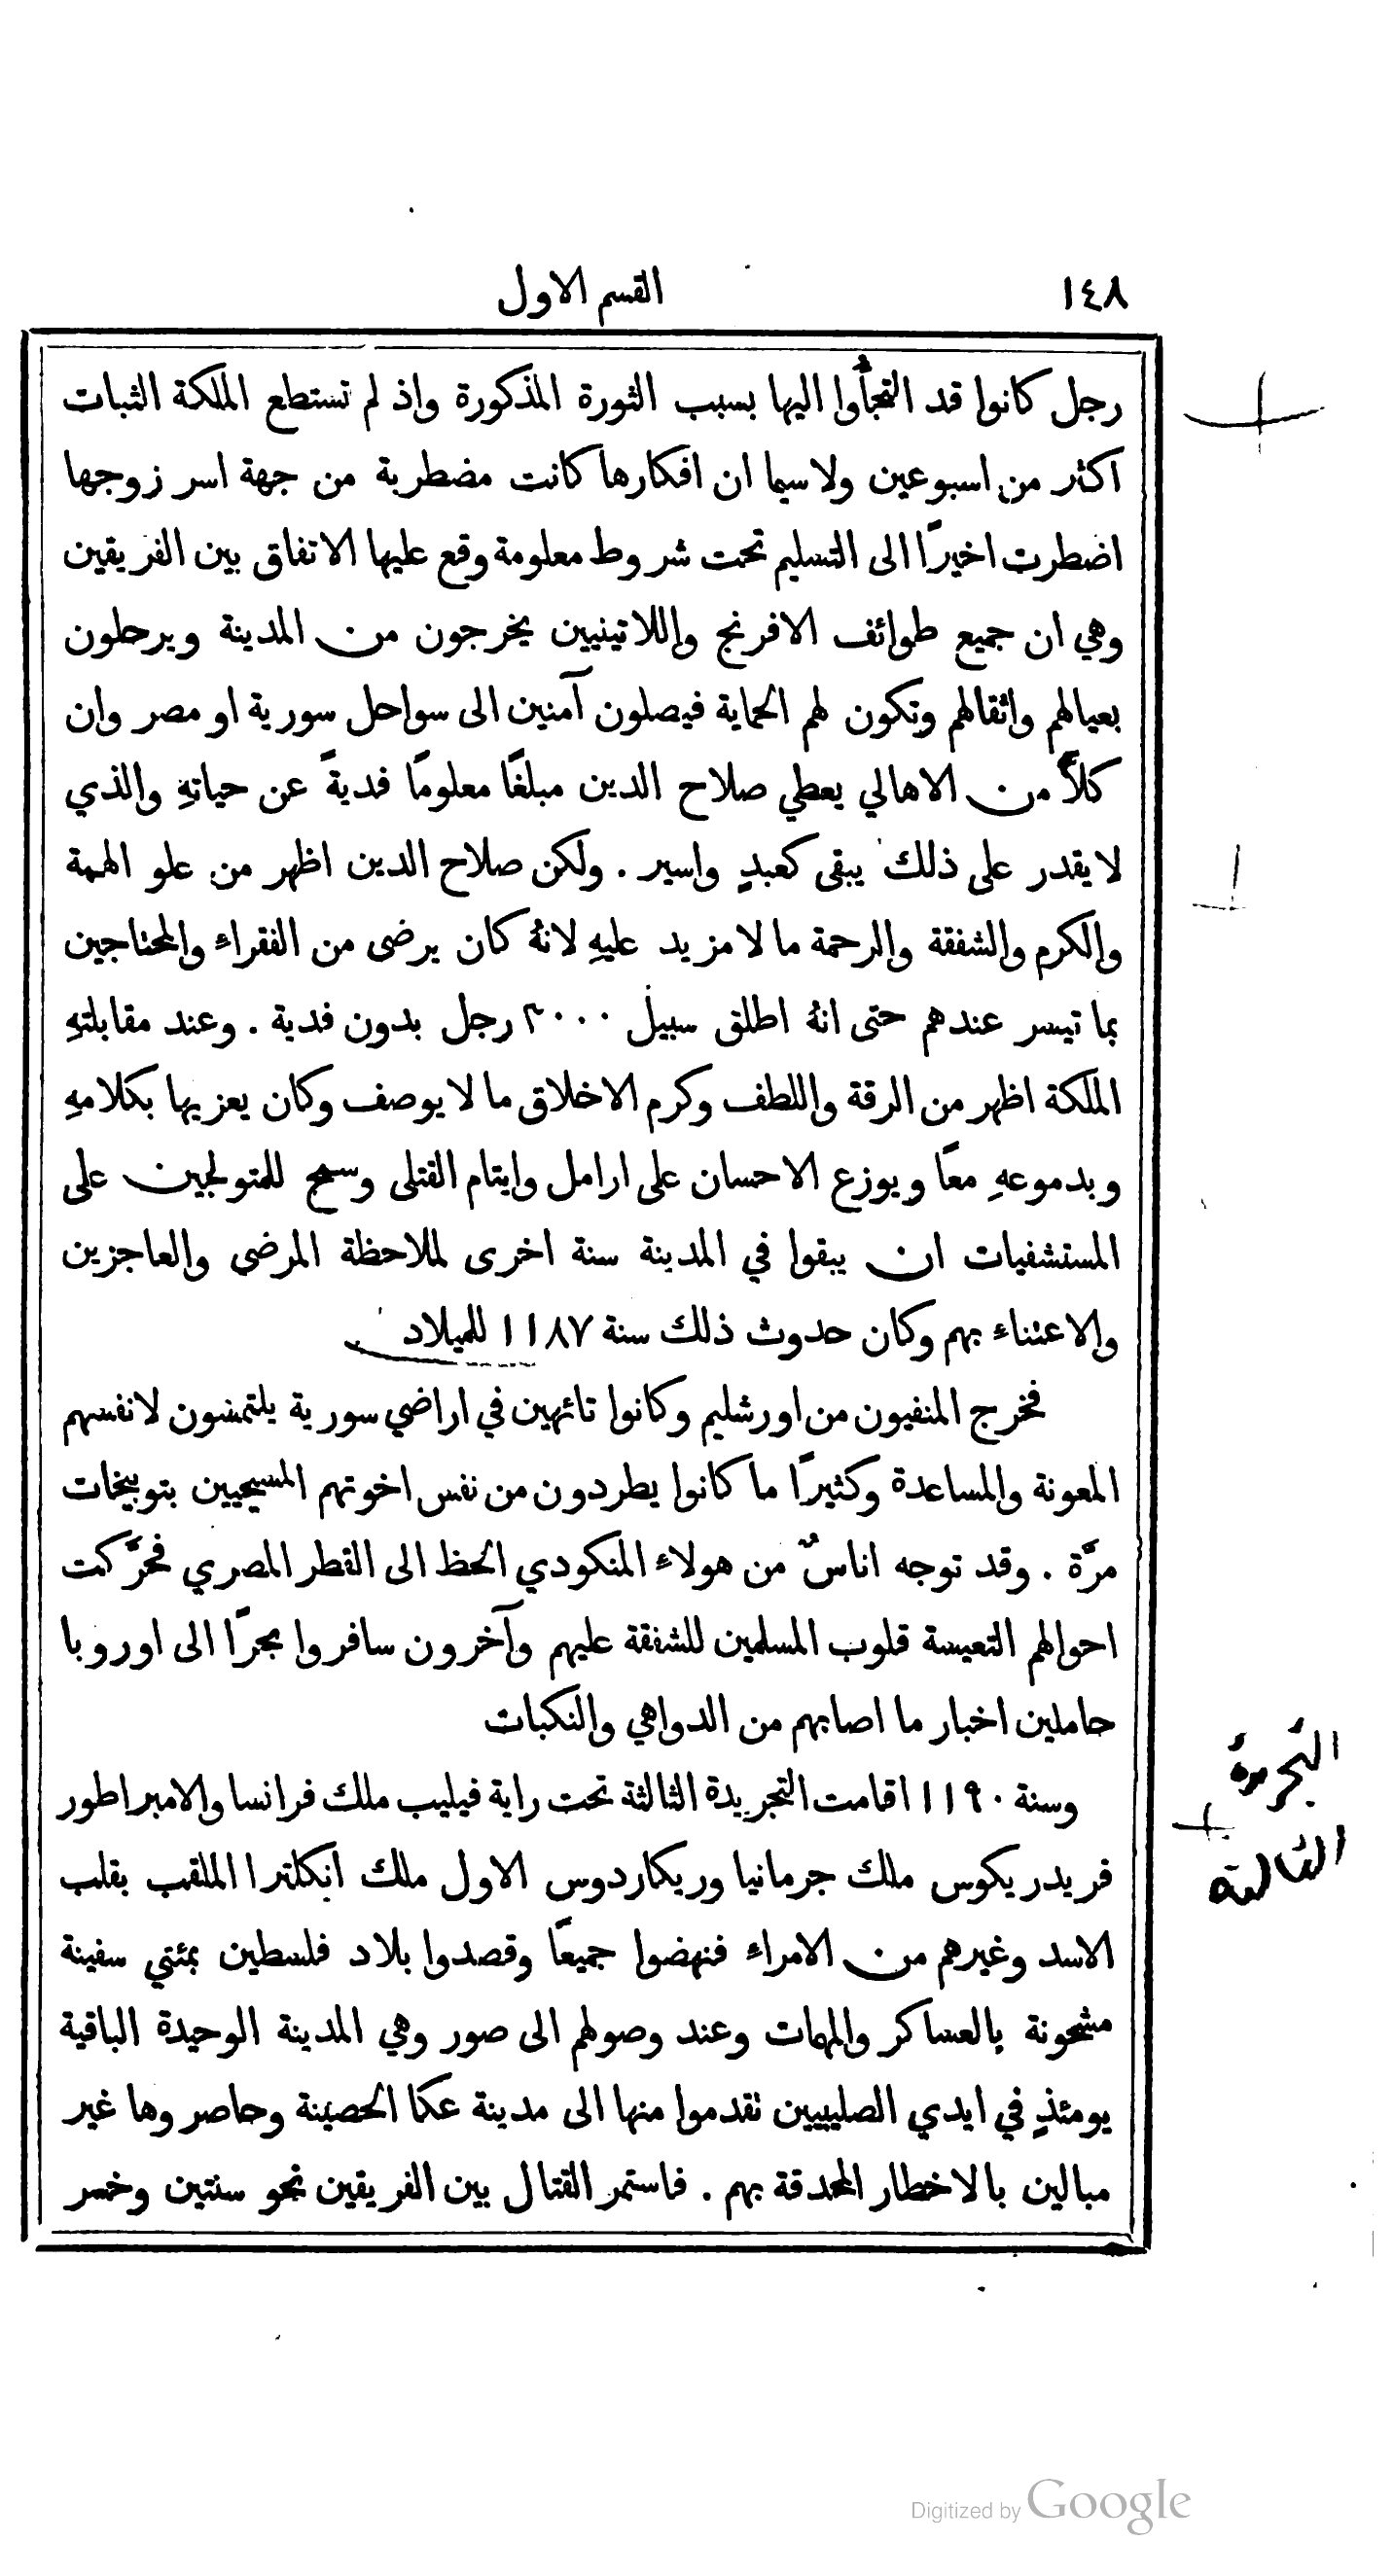 ١٤٨ القسم الاول
رجل كانوا قد التجأُوا اليها بسبب الثورة المذكورة واذ لم تستطع الملكة الثبات
اكثر من اسبوعين ولاسيما ان افكارها كانت مضطربة من جهة اسر زوجها
اضطرت اخيرًا الى التسليم تحت شروط معلومة وقع عليها الاتفاق بين الفريقين
وهي ان جميع طوائف الافرنج واللاتينيين يخرجون من المدينة ويرحلون
بعيالهم واثقالهم وتكون لهم الحماية فيصلون آمنين الى سواحل سورية او مصر وان
كلاًّ من الاهالي يعطي صلاح الدين مبلغًا معلومًا فديةً عن حياتهِ والذي
لا يقدر على ذلك يبقى كعبدٍ واسير . ولكن صلاح الدين اظهر من علو الهمة
والكرم والشفقة والرحمة ما لا مزيد عليهِ لانهُ كان يرضى من الفقراءِ والمحتاجين
بما تيسر عندهم حتى انهُ اطلق سبيل ٢٠٠٠ رجل بدون فدية . وعند مقابلتهِ
الملكة اظهر من الرقة واللطف وكرم الاخلاق ما لا يوصف وكان يعزيها بكلامهِ
وبدموعهِ معًا ويوزع الاحسان على ارامل وايتام القتلى وسمح للمتولجين على
المستشفيات ان يبقوا في المدينة سنة اخرى لملاحظة المرضى والعاجزين
والاعتناءِ بهم وكان حدوث ذلك سنة ١١٨٧ للميلاد
فخرج المنفيون من اورشليم وكانوا تائهين في اراضي سورية يلتمسون لانفسهم
المعونة والمساعدة وكثيرًا ما كانوا يطردون من نفس اخوتهم المسيحيين بتوبيخات
مرَّة . وقد توجه اناسٌ من هولاءِ المنكودي الحظ الى القطر المصري فحرَّكت
احوالهم التعيسة قلوب المسلمين للشفقة عليهم وآخرون سافروا بحرًا الى اوروبا
حاملين اخبار ما اصابهم من الدواهي والنكبات
وسنة ١١٩٠ اقامت التجريدة الثالثة تحت راية فيليب ملك فرانسا والامبراطور
فريدريكوس ملك جرمانيا وريكاردوس الاول ملك انكلترا الملقب بقلب
الاسد وغيرهم من الامراءِ فنهضوا جميعًا وقصدوا بلاد فلسطين بمئتي سفينة
مشحونة بالعساكر والمهمات وعند وصولهم الى صور وهي المدينة الوحيدة الباقية
يومئذٍ في ايدي الصليبيين تقدموا منها الى مدينة عكا الحصينة وحاصروها غير
مبالين بالاخطار المحدقة بهم . فاستمر القتال بين الفريقين نحو سنتين وخسر
التجريدة
الثالثة
Digitized by Google